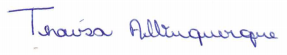 Thaísa Albuquerque